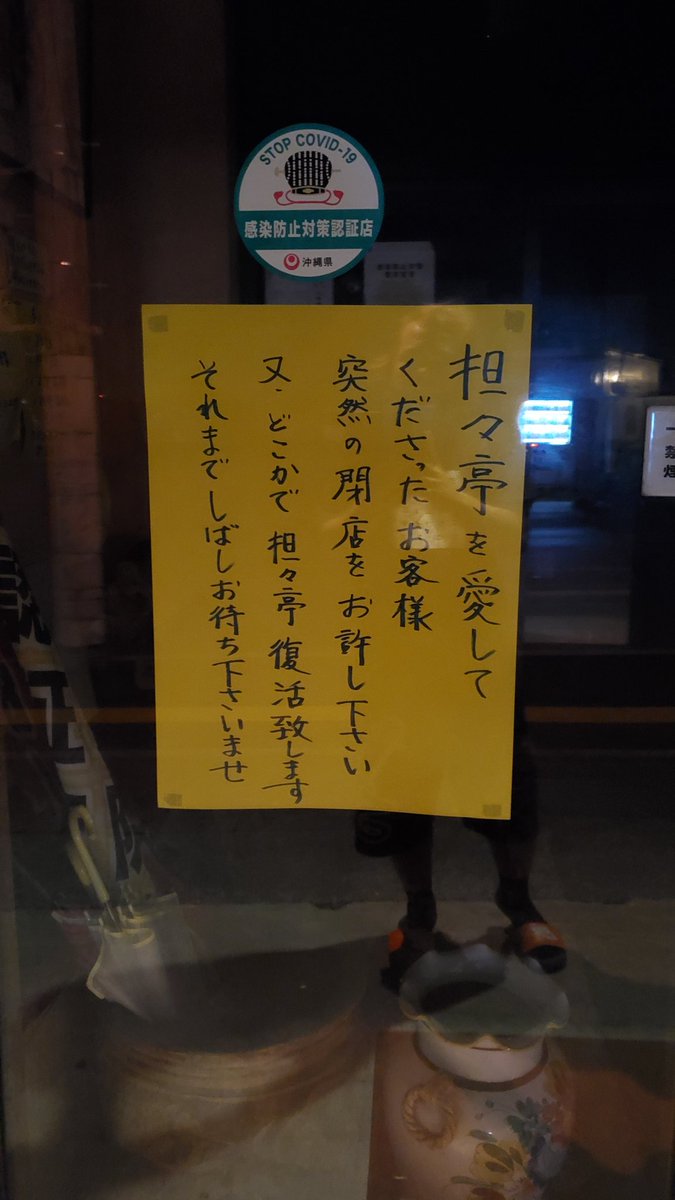 STOP COVID-19
感染防止対策認証店
沖縄県
担々亭を愛して
くださったお客様
突然の閉店をお許し下さい
又、どこかで担々亭復活致します
それまでしばしお待ち下さいませ
禁煙